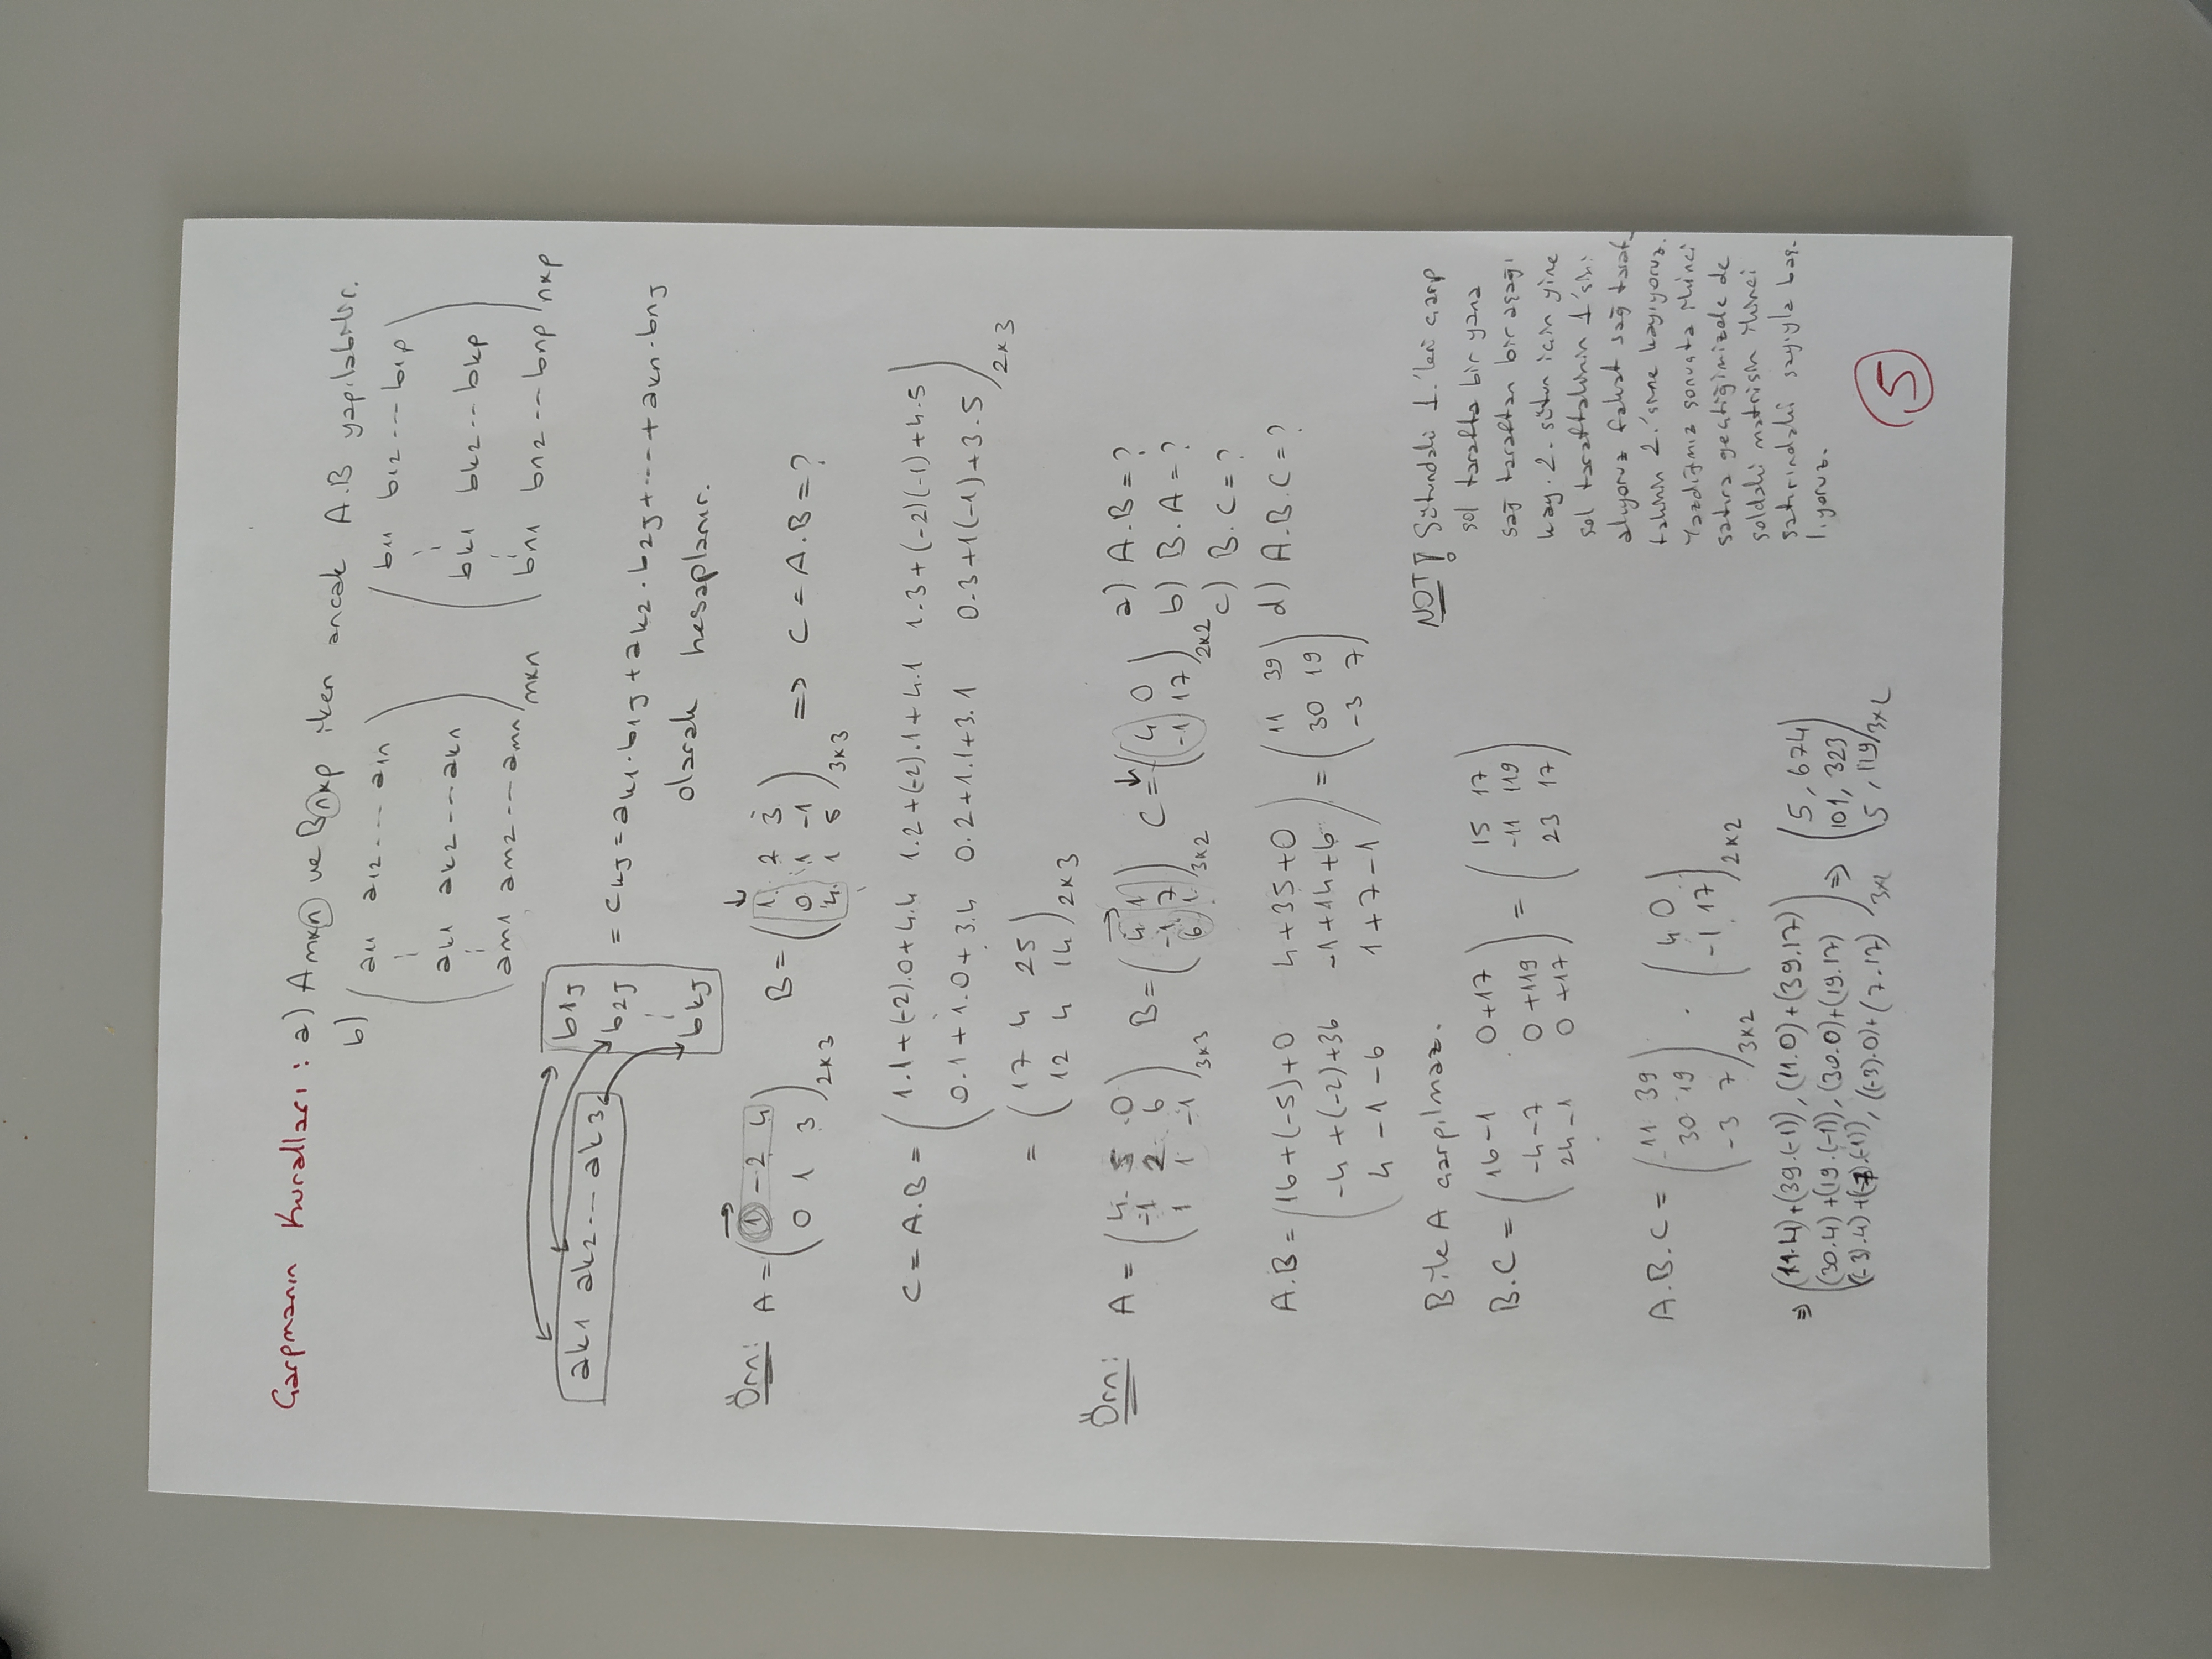 Çarpmanın Kuralları: a) Amxn ve Bnxp iken ancak A.B yapılabilir.
b) ( a11 a12 ... a1n ) ( b11 b12 --- b1p )
( ak1 ak2 --- akn ) ( bk1 bk2 -- bkp )
( am1 am2 --- amn )mxn ( bn1 bn2 --- bnp )nxp
ak1 ak2 ... ak3
b1j
b2j
bkj
= ckj = ak1.b1j + ak2.b2j + ---- + akn.bnj
olarak hesaplanır.
Örn: A = ( 1 -2 4 ) B = ( 1 2 3 ) => C = A.B = ?
( 0 1 3 )2x3 ( 0 1 -1 )
( 4 1 5 )3x3
C = A.B = ( 1.1+(-2).0+4.4 1.2+(-2).1+4.1 1.3+(-2)(-1)+4.5 )
( 0.1+1.0+3.4 0.2+1.1+3.1 0.3+1(-1)+3.5 )2x3
= ( 17 4 25 )
( 12 4 14 )2x3
Örn: A = ( 4 5 0 ) B = ( 4 1 ) C = ( 4 0 ) a) A.B = ?
( -1 2 6 ) ( -1 7 ) ( -1 17 )2x2 b) B.A = ?
( 1 1 -1 )3x3 ( 6 1 )3x2 c) B.C = ?
d) A.B.C = ?
A.B = ( 16+(-5)+0 4+35+0 ) = ( 11 39 )
( -4+(-2)+36 -1+14+6 ) ( 30 19 )
( 4-1-6 1+7-1 ) ( -3 7 )
B ile A çarpılmaz.
B.C = ( 16-1 0+17 ) = ( 15 17 )
( -4-7 0+119 ) ( -11 119 )
( 24-1 0+17 ) ( 23 17 )
A.B.C = ( 11 39 ) . ( 4 0 )
( 30 19 ) ( -1 17 )2x2
( -3 7 )3x2
=> ( (11.4)+(39.(-1)), (11.0)+(39.17) ) => ( 5, 674 )
( (30.4)+(19.(-1)), (30.0)+(19.17) ) ( 101, 323 )
( ((-3).4)+(7.(-1)), ((-3).0)+(7.17) )3x2 ( 5, 119 )3x2
NOT! Sütundaki 1.'leri çarp
sol tarafta bir yana
sağ taraftan bir aşağı
kay. 2. sütun için yine
sol taraftakinin 1'sini
alıyoruz fakat sağ taraf-
takinin 2.'sine kayıyoruz.
Yazdığımız sonuçta ikinci
satıra geçtiğimizde de
soldaki matrisin ikinci
satırındaki sayıyla baş-
lıyoruz.
5